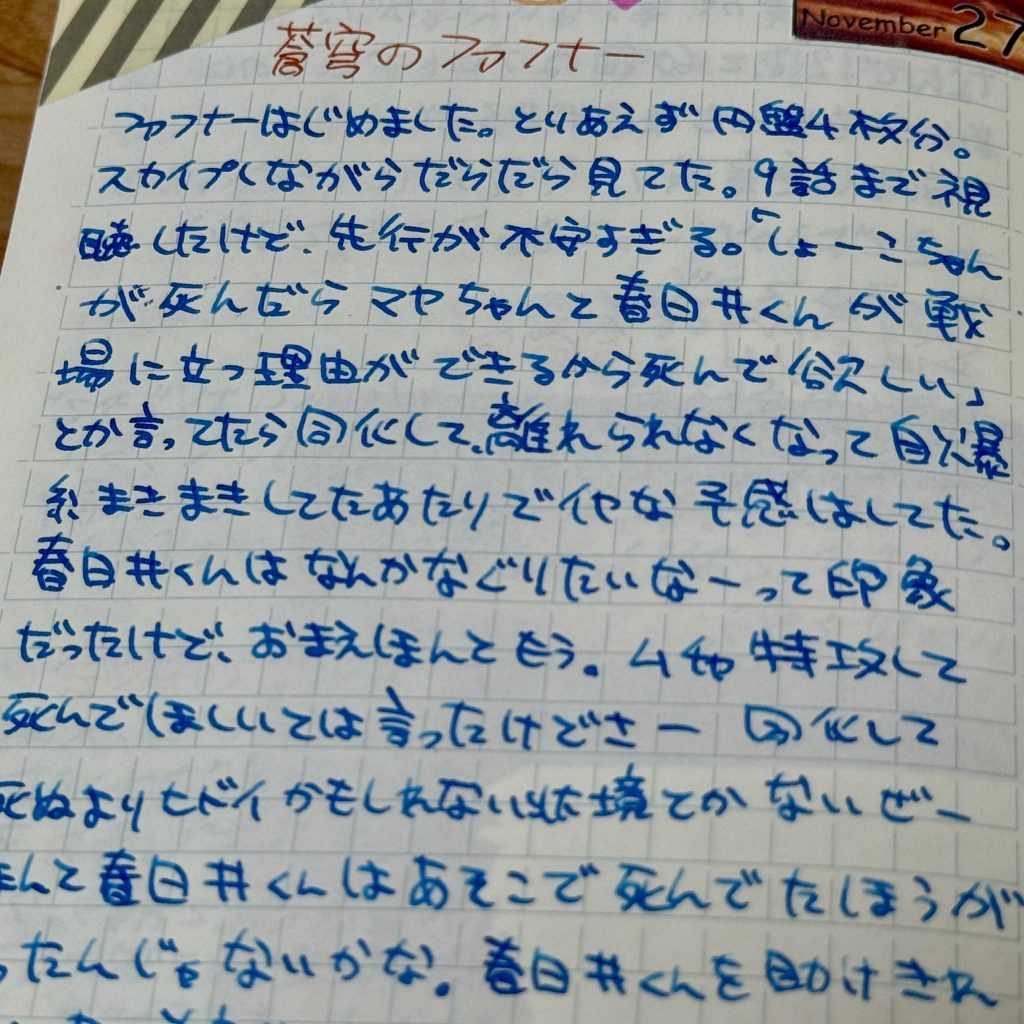 November 27
蒼穹のファフナー
ファフナーはじめました。とりあえず円盤4枚分。
スカイプしながらだらだら見てた。9話まで視
聴したけど、先行が不安すぎる。「しょーこちゃん
が死んだらマヤちゃんと春日井くんが戦
場に立つ理由ができるから死んで欲しい」
とか言ってたら同化して、離れられなくなって自爆
糸まきまきしてたあたりでイヤな予感はしてた。
春日井くんはなんかなぐりたいなーって印象
だったけど、おまえほんともう。ムチャ特攻して
死んでほしいとは言ったけどさー 同化して
死ぬよりヒドイかもしれない状境とかないぜー
ほんと春日井くんはあそこで死んでたほうが
ったんじゃないかな。春日井くんを助けきれ